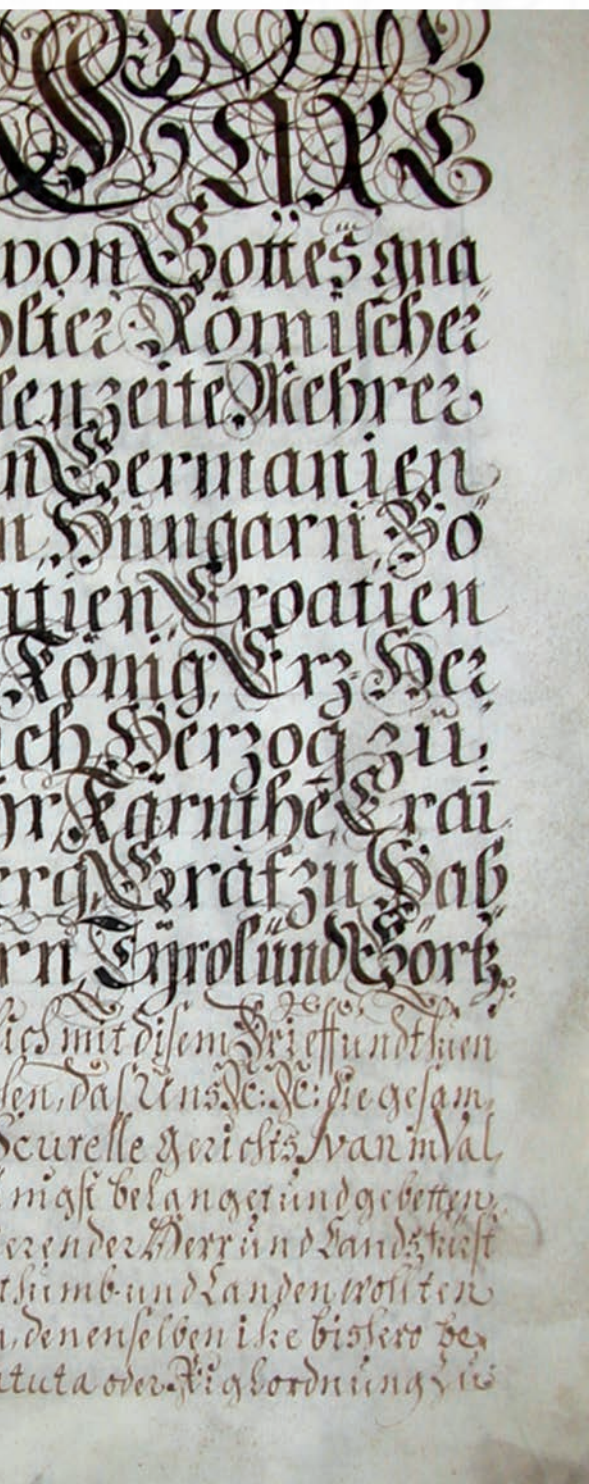 CARL
von Gottes gna
Römischer
lenzeite Mehrer
n Germanien
n, Hungarn, Bö
atien Croatien
König, Erz-Her
ich, Herzog zu
Kärnthē, Crai
erg, Graf zu Hab
rn, Tÿrol und Görtz.
lich mit disem Brieff und thuen
len, das Uns N: N: die gesam,
Scurelle gerichts Ivan in Val
nigst belanget und gebetten,
Herr und Landsfürst
thumb- und Landen wolten
denenselben ihre bishero be,
tuta oder